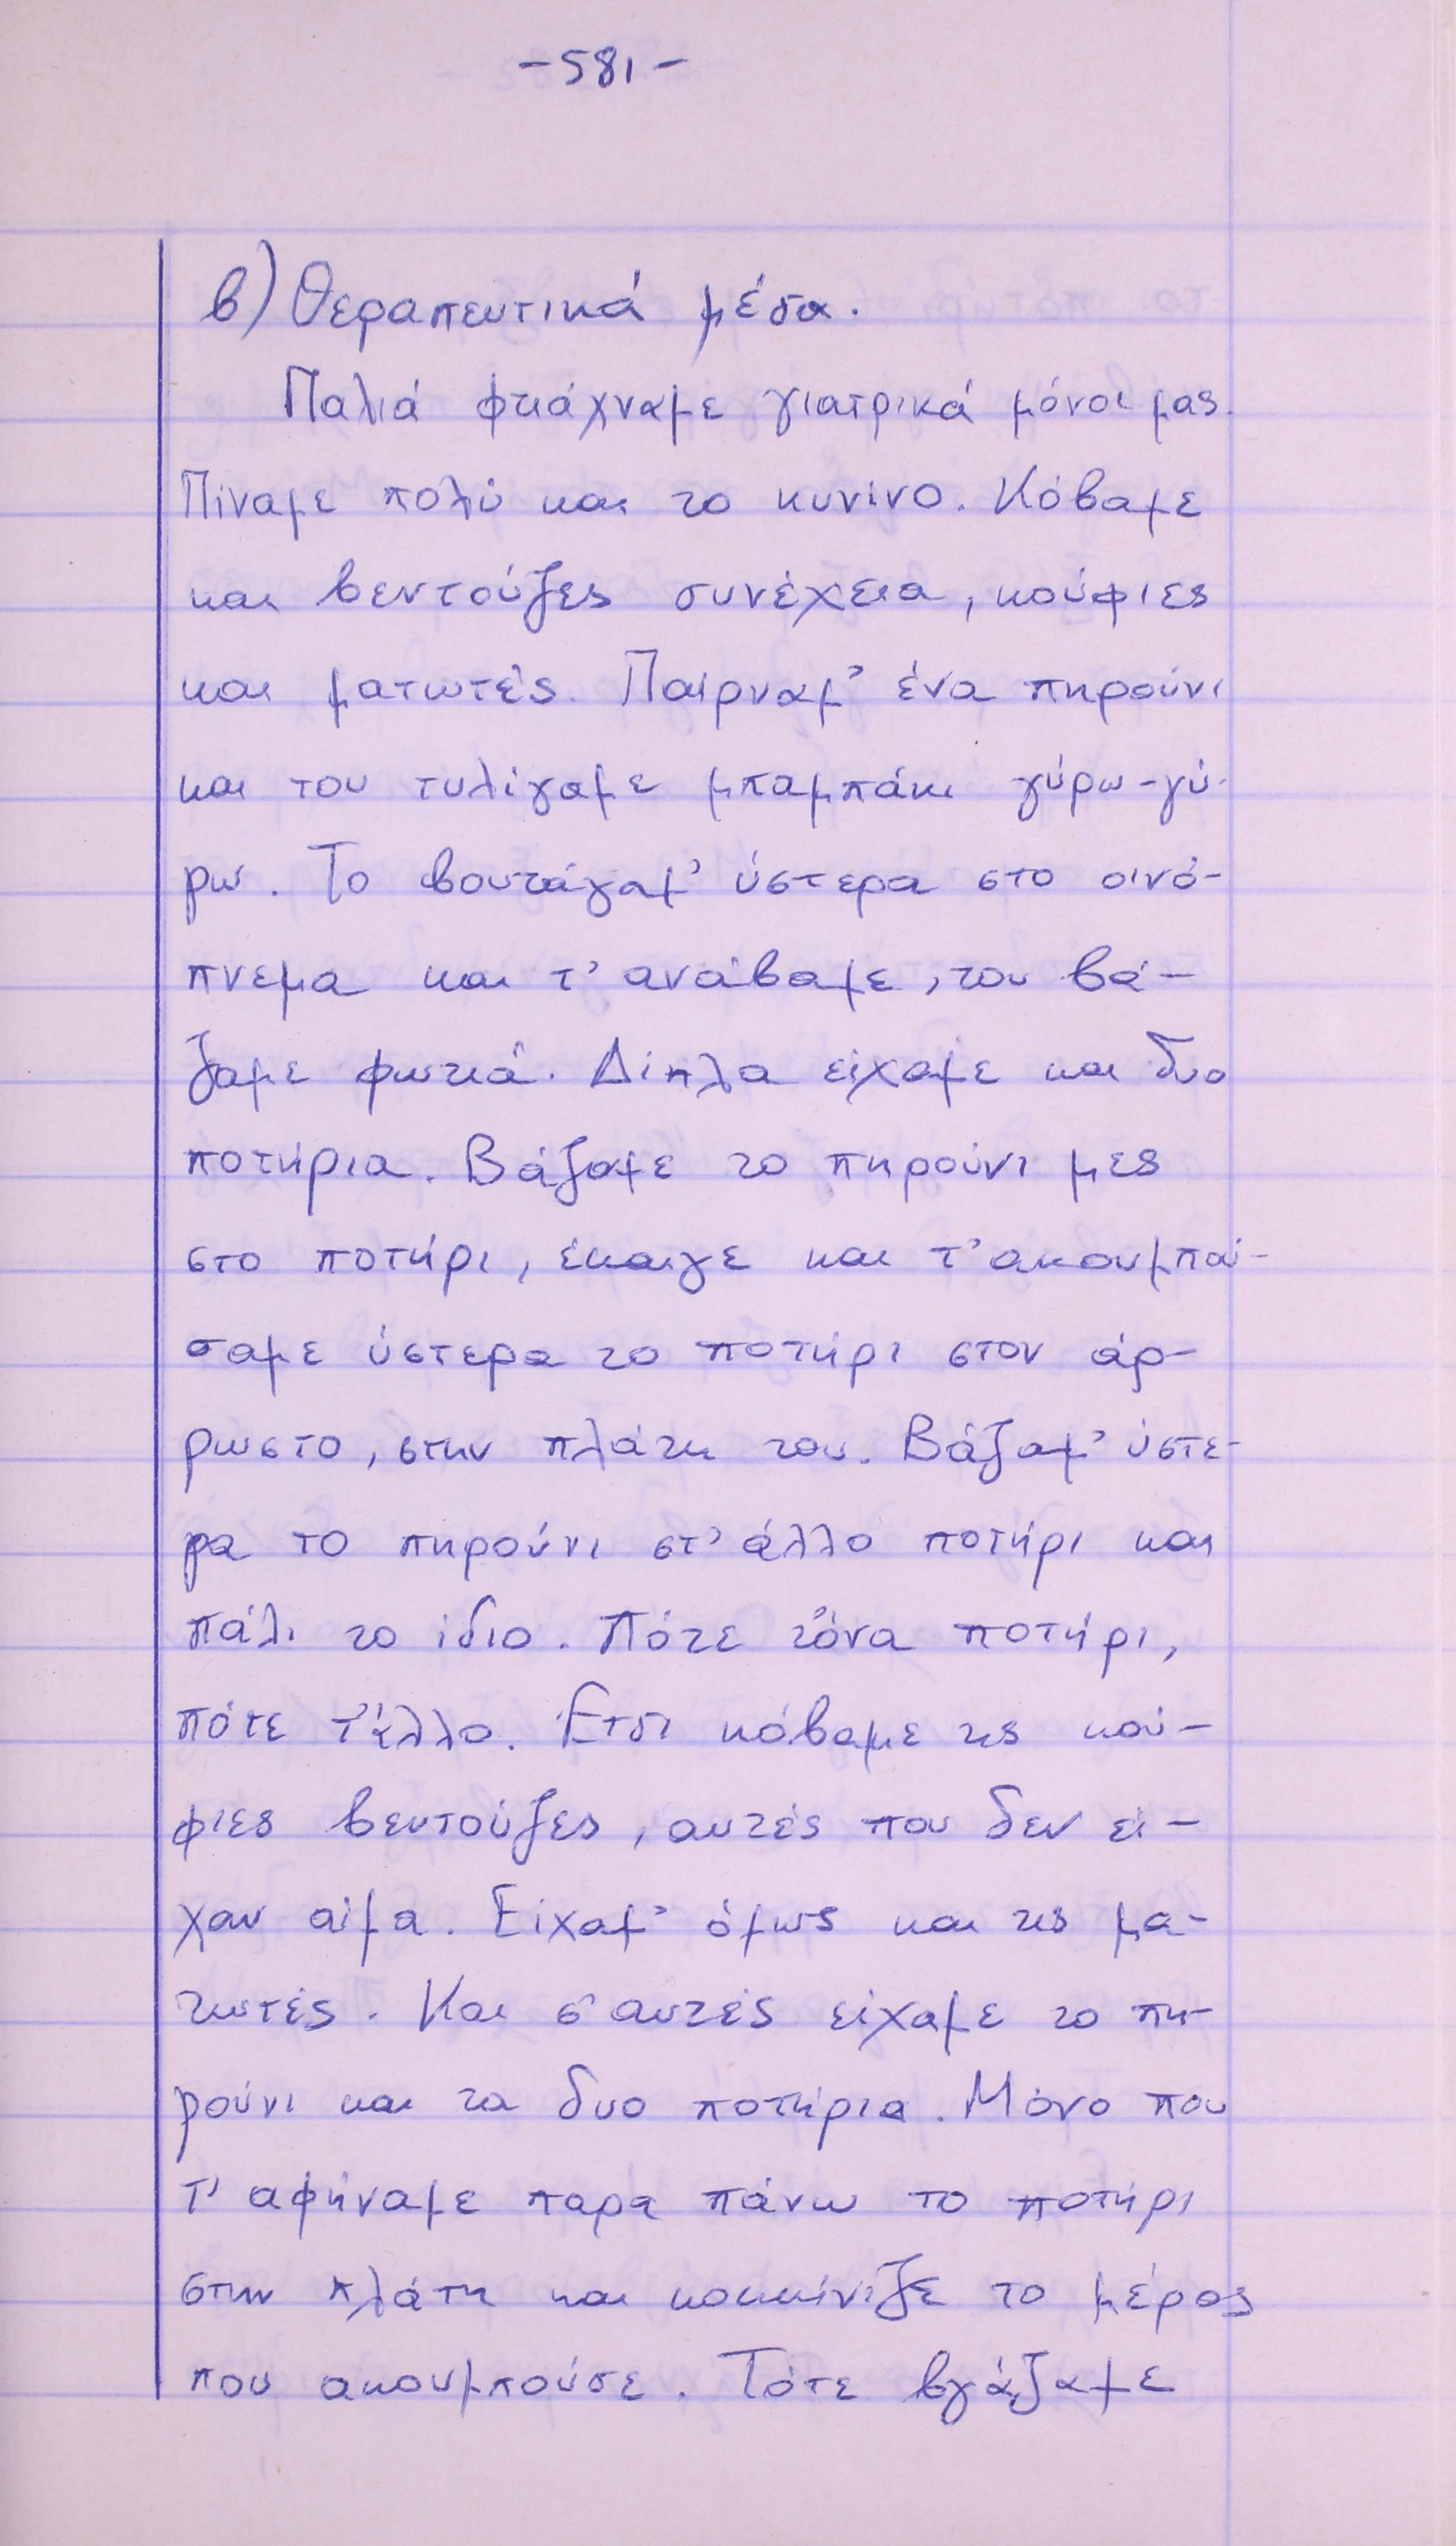 -581-
β) Θεραπευτικά μέσα.
Παλιά φτιάχναμε γιατρικά μόνοι μας.
Πίναμε πολύ και το κινίνο. Κόβαμε
και βεντούζες συνέχεια, κούφιες
και ματωτές. Παίρναμ' ένα πηρούνι
και του τυλίγαμε μπαμπάκι γύρω-γύ-
ρω. Το βουτάγαμ' ύστερα στο οινό-
πνεμα και τ' ανάβαμε, του βά-
ζαμε φωτιά. Δίπλα είχαμε και δυο
ποτήρια. Βάζαμε το πηρούνι μες
στο ποτήρι, έκαιγε και τ' ακουμπού-
σαμε ύστερα το ποτήρι στον άρ-
ρωστο, στην πλάτη του. Βάζαμ' ύστε-
ρα το πηρούνι στ' άλλο ποτήρι και
πάλι το ίδιο. Πότε τόνα ποτήρι,
πότε τ' άλλο. Έτσι κόβαμε τις κού-
φιες βεντούζες, αυτές που δεν εί-
χαν αίμα. Είχαμ' όμως και τις μα-
τωτές. Και σ' αυτές είχαμε το πη-
ρούνι και τα δυο ποτήρια. Μόνο που
τ' αφήναμε παρα πάνω το ποτήρι
στην πλάτη και κοκκίνιζε το μέρος
που ακουμπούσε. Τότε βγάζαμε